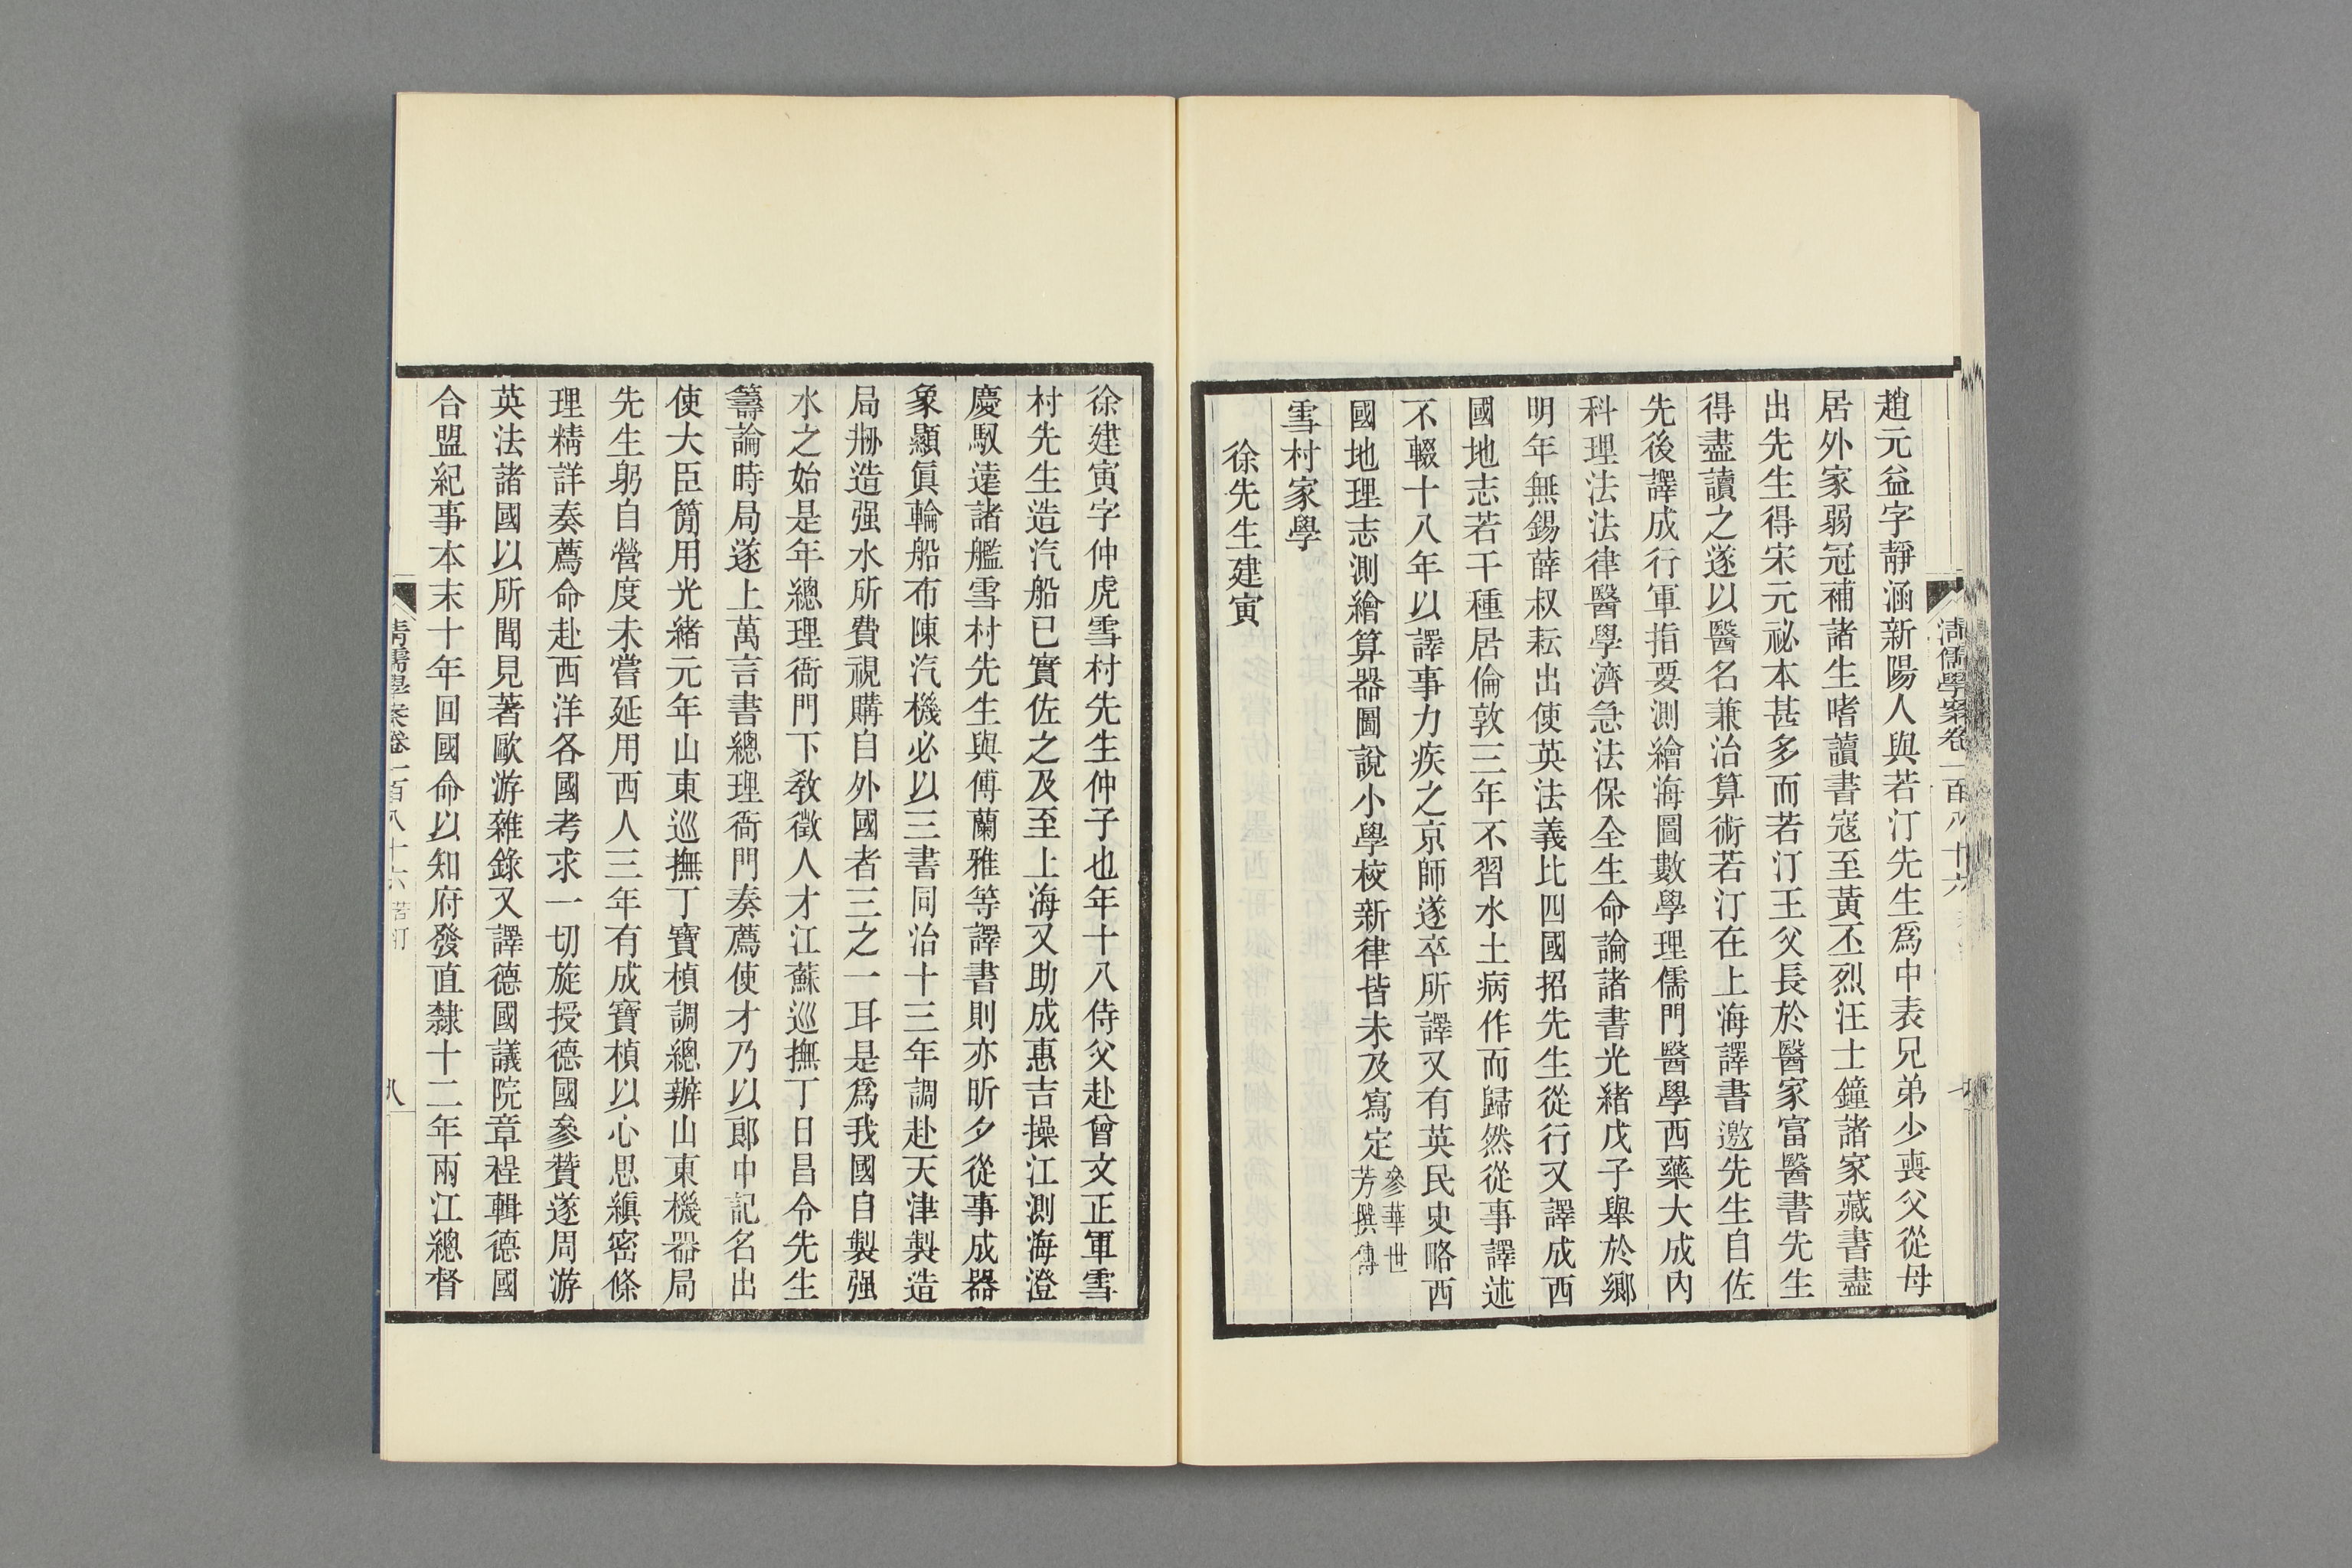 趙元益字靜涵新陽人與若汀先生爲中表兄弟少喪父從母
居外家弱冠補諸生嗜讀書寇至黃丕烈汪士鐘諸家藏書盡
出先生得宋元祕本甚多而若汀王父長於醫家富醫書先生
得盡讀之遂以醫名兼治算術若汀在上海譯書邀先生自佐
先後譯成行軍指要測繪海圖數學理儒門醫學西藥大成內
科理法法律醫學濟急法保全生命論諸書光緒戊子舉於鄉
明年無錫薛叔耘出使英法義比四國招先生從行又譯成西
國地志若干種居倫敦三年不習水土病作而歸然從事譯述
不輟十八年以譯事力疾之京師遂卒所譯又有英民史略西
國地理志測繪算器圖說小學校新律皆未及寫定參華世芳撰傳
雪村家學
徐先生建寅
清儒學案卷一百八十六
徐建寅字仲虎雪村先生仲子也年十八侍父赴曾文正軍雪
村先生造汽船已實佐之及至上海又助成惠吉操江測海澄
慶馭遠諸艦雪村先生與傅蘭雅等譯書則亦昕夕從事成器
象顯眞輪船布陳汽機必以三書同治十三年調赴天津製造
局刱造强水所費視購自外國者三之一耳是爲我國自製强
水之始是年總理衙門下敎徵人才江蘇巡撫丁日昌令先生
籌論時局遂上萬言書總理衙門奏薦使才乃以郎中記名出
使大臣簡用光緒元年山東巡撫丁寶楨調總辦山東機器局
先生躬自營度未嘗延用西人三年有成寶楨以心思縝密條
理精詳奏薦命赴西洋各國考求一切旋授德國參贊遂周游
英法諸國以所聞見著歐游雜錄又譯德國議院章程輯德國
合盟紀事本末十年回國命以知府發直隸十二年兩江總督
清儒學案卷一百八十六 若汀 八